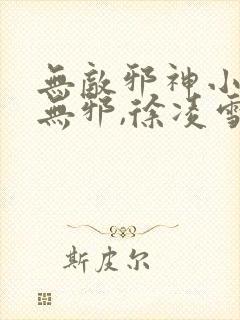 無敵邪神小
無邪,徐凌雪
斯皮尔